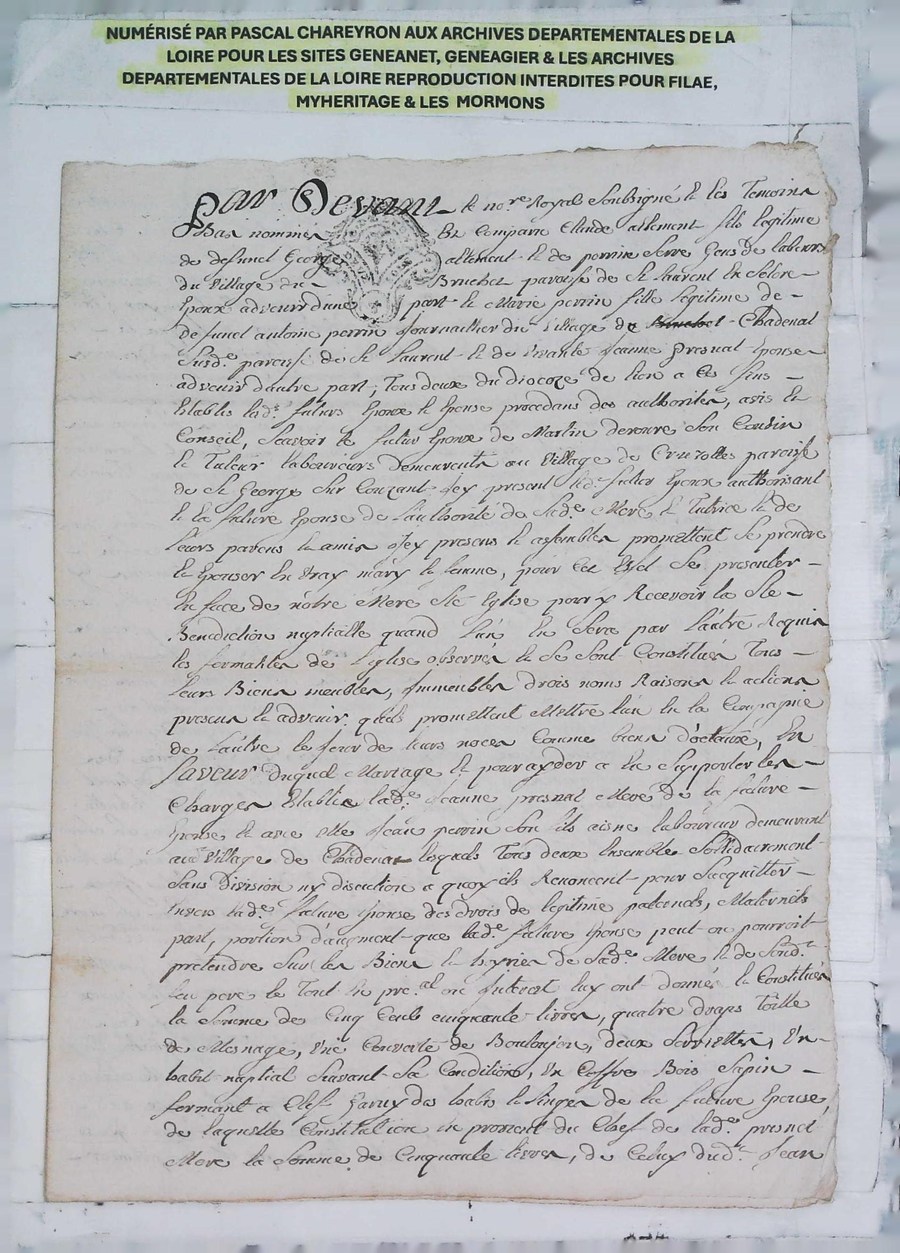 NUMÉRISÉ PAR PASCAL CHAREYRON AUX ARCHIVES DEPARTEMENTALES DE LA
LOIRE POUR LES SITES GENEANET, GENEAGIER & LES ARCHIVES
DEPARTEMENTALES DE LA LOIRE REPRODUCTION INTERDITES POUR FILAE,
MYHERITAGE & LES MORMONS
Par Devant le nore Royal Soubsigné & les Temoins
Bas nommes Est Comparu Claude allement fils legitime
de defunct George allement & de perrine Serre Gens de labeurs
du village du Bruchet paroisse de St laurent En Solore
Epoux advenir dune part & Marie perrin fille legitime de
defunct antoine perrin Journaillier du village de Chadenat
Susde paroisse de St Laurent & de vivante Jeanne presnat Epouse
advenir dautre part, Tous deux du diocoze de lion a Ces fins
Etablis lesds futurs Epoux & Epouse procedans des authorites, avis &
Conseil, Scavoir le futur Epoux de Martin deroure Son Cousin
& Tuteur laboureurs demeurants au village de Cruzolles paroisse
de St George Sur Couzant Icy present led futur Epoux authorisant
& la future Epouse de Lauthorité de Sade Mere & Tutrice & de
leurs parens & amis Icy presens & assembles promettent Se prendre
& Epouser En vray mary & femme, pour Cet Effet Se presenter
En face de nôtre Mere Ste Eglise pour y Recevoir la Ste
Benediction nuptialle quand L'un En Sera par L'autre Requis
les formalites de l'Eglise observés & Se Sont Constitués Tous
leurs Biens meubles, Immeubles drois noms Raisons & actions
presens & advenir quils promettent Mettre L'un En la Compagnie
de L'autre le Jour de leurs noces Comme biens d'octaire, En
faveur duquel Mariage & pour ayder a En Suporter les
Charges Etablie lade Jeanne presnat Mere de la future
Epouse & avec Elle Jean perrin Son fils aisne laboureur demeurant
aud village de Chadenat lesquels Tous deux Ensemble Sollidairement
Sans Division ny discution a quoy ils Renoncent pour Sacquitter
Envers lade future Epouse des drois de legitime paternels, Maternels
part, portion d'augment que lade future Epouse peut ou pourroit
pretendre Sur les Biens & hoyries de Sade Mere & de Sondt
feu pere le Tout En pre.al ou Interest luy ont donné & Constitués
la Somme de Cinq Cents Cinquante livres, quatre draps Toille
de Mesnage, Une Couverte de Boulonjon, deux Serviettes, Un
habit nuptial Suivant Sa Condition, Un Coffre Bois Sapin
fermant a Clef Garny des habis & linges de la future Epouse,
de laquelle Constitution En provient du Chef de lade presnat
Mere la Somme de Cinquante livres, de Celuy dudt Jean